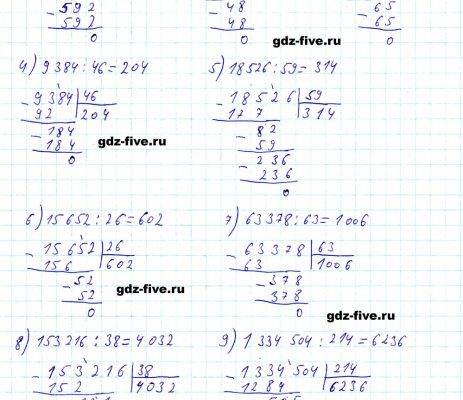 - 592
592
0
- 48
48
0
- 65
65
0
gdz-five.ru
4) 9384 : 46 = 204
- 9384 | 46
92 | 204
- 184
184
0
gdz-five.ru
5) 18526 : 59 = 314
- 18526 | 59
177 | 314
- 82
59
- 236
236
0
6) 15652 : 26 = 602
- 15652 | 26
156 | 602
- 52
52
0
gdz-five.ru
7) 63378 : 63 = 1006
- 63378 | 63
63 | 1006
- 378
378
0
gdz-five.ru
8) 153216 : 38 = 4032
- 153216 | 38
152 | 4032
9) 1334504 : 214 = 6236
- 1334504 | 214
1284 | 6236